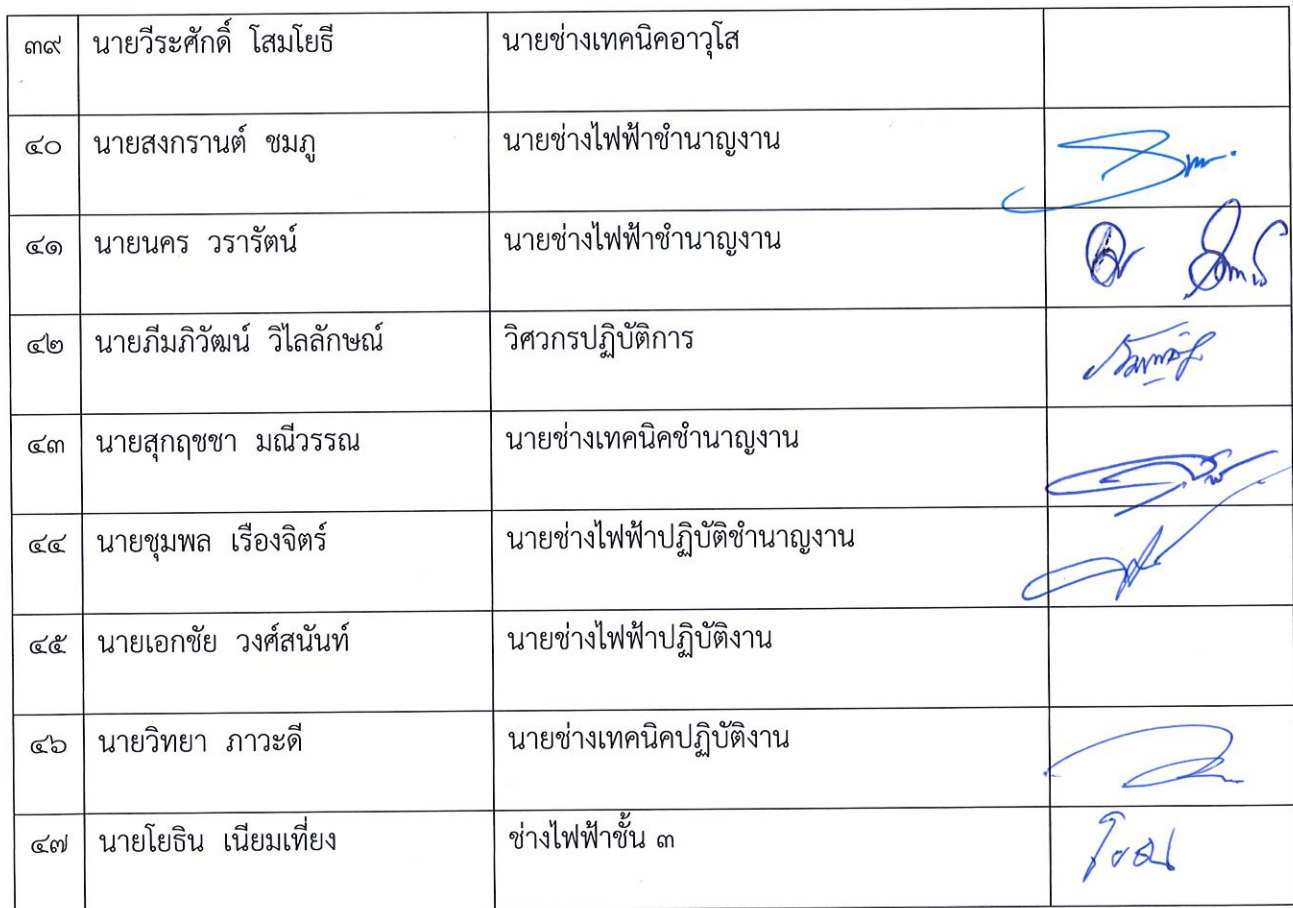 ๓๙ นายวีระศักดิ์ โสมโยธี นายช่างเทคนิคอาวุโส
๔๐ นายสงกรานต์ ชมภู นายช่างไฟฟ้าชำนาญงาน
๔๑ นายนคร วรารัตน์ นายช่างไฟฟ้าชำนาญงาน
๔๒ นายภีมภิวัฒน์ วิไลลักษณ์ วิศวกรปฏิบัติการ
๔๓ นายสุกฤชชา มณีวรรณ นายช่างเทคนิคชำนาญงาน
๔๔ นายชุมพล เรืองจิตร์ นายช่างไฟฟ้าปฏิบัติชำนาญงาน
๔๕ นายเอกชัย วงศ์สนันท์ นายช่างไฟฟ้าปฏิบัติงาน
๔๖ นายวิทยา ภาวะดี นายช่างเทคนิคปฏิบัติงาน
๔๗ นายโยธิน เนียมเที่ยง ช่างไฟฟ้าชั้น ๓